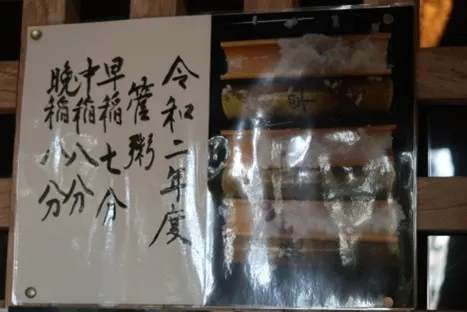 令和二年度
管粥
早稲七分
中稲八分
晩稲八分